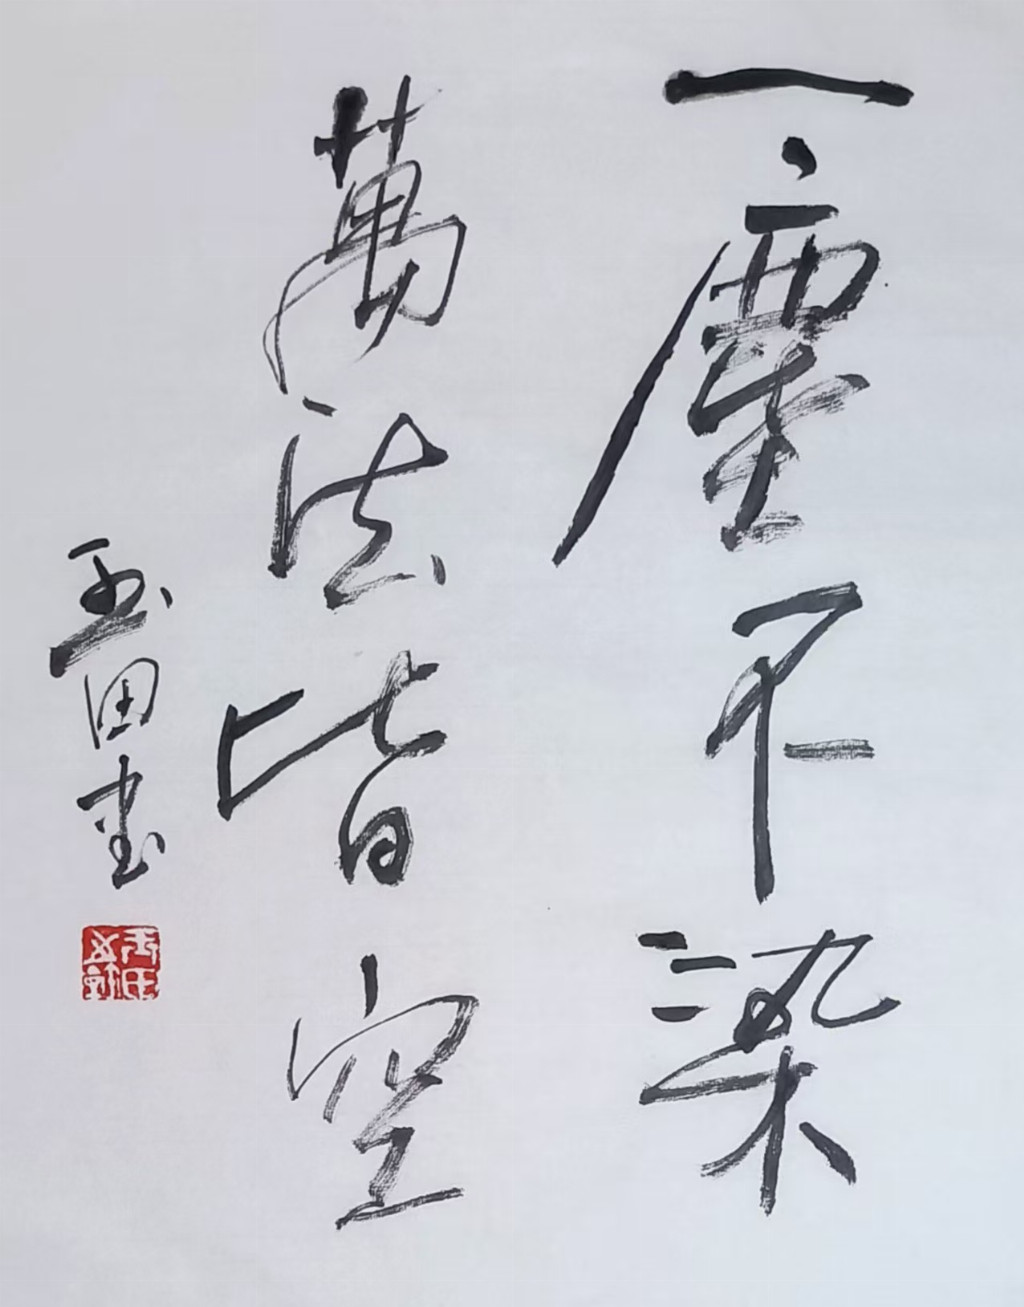 一塵不染
萬法皆空
玉田書